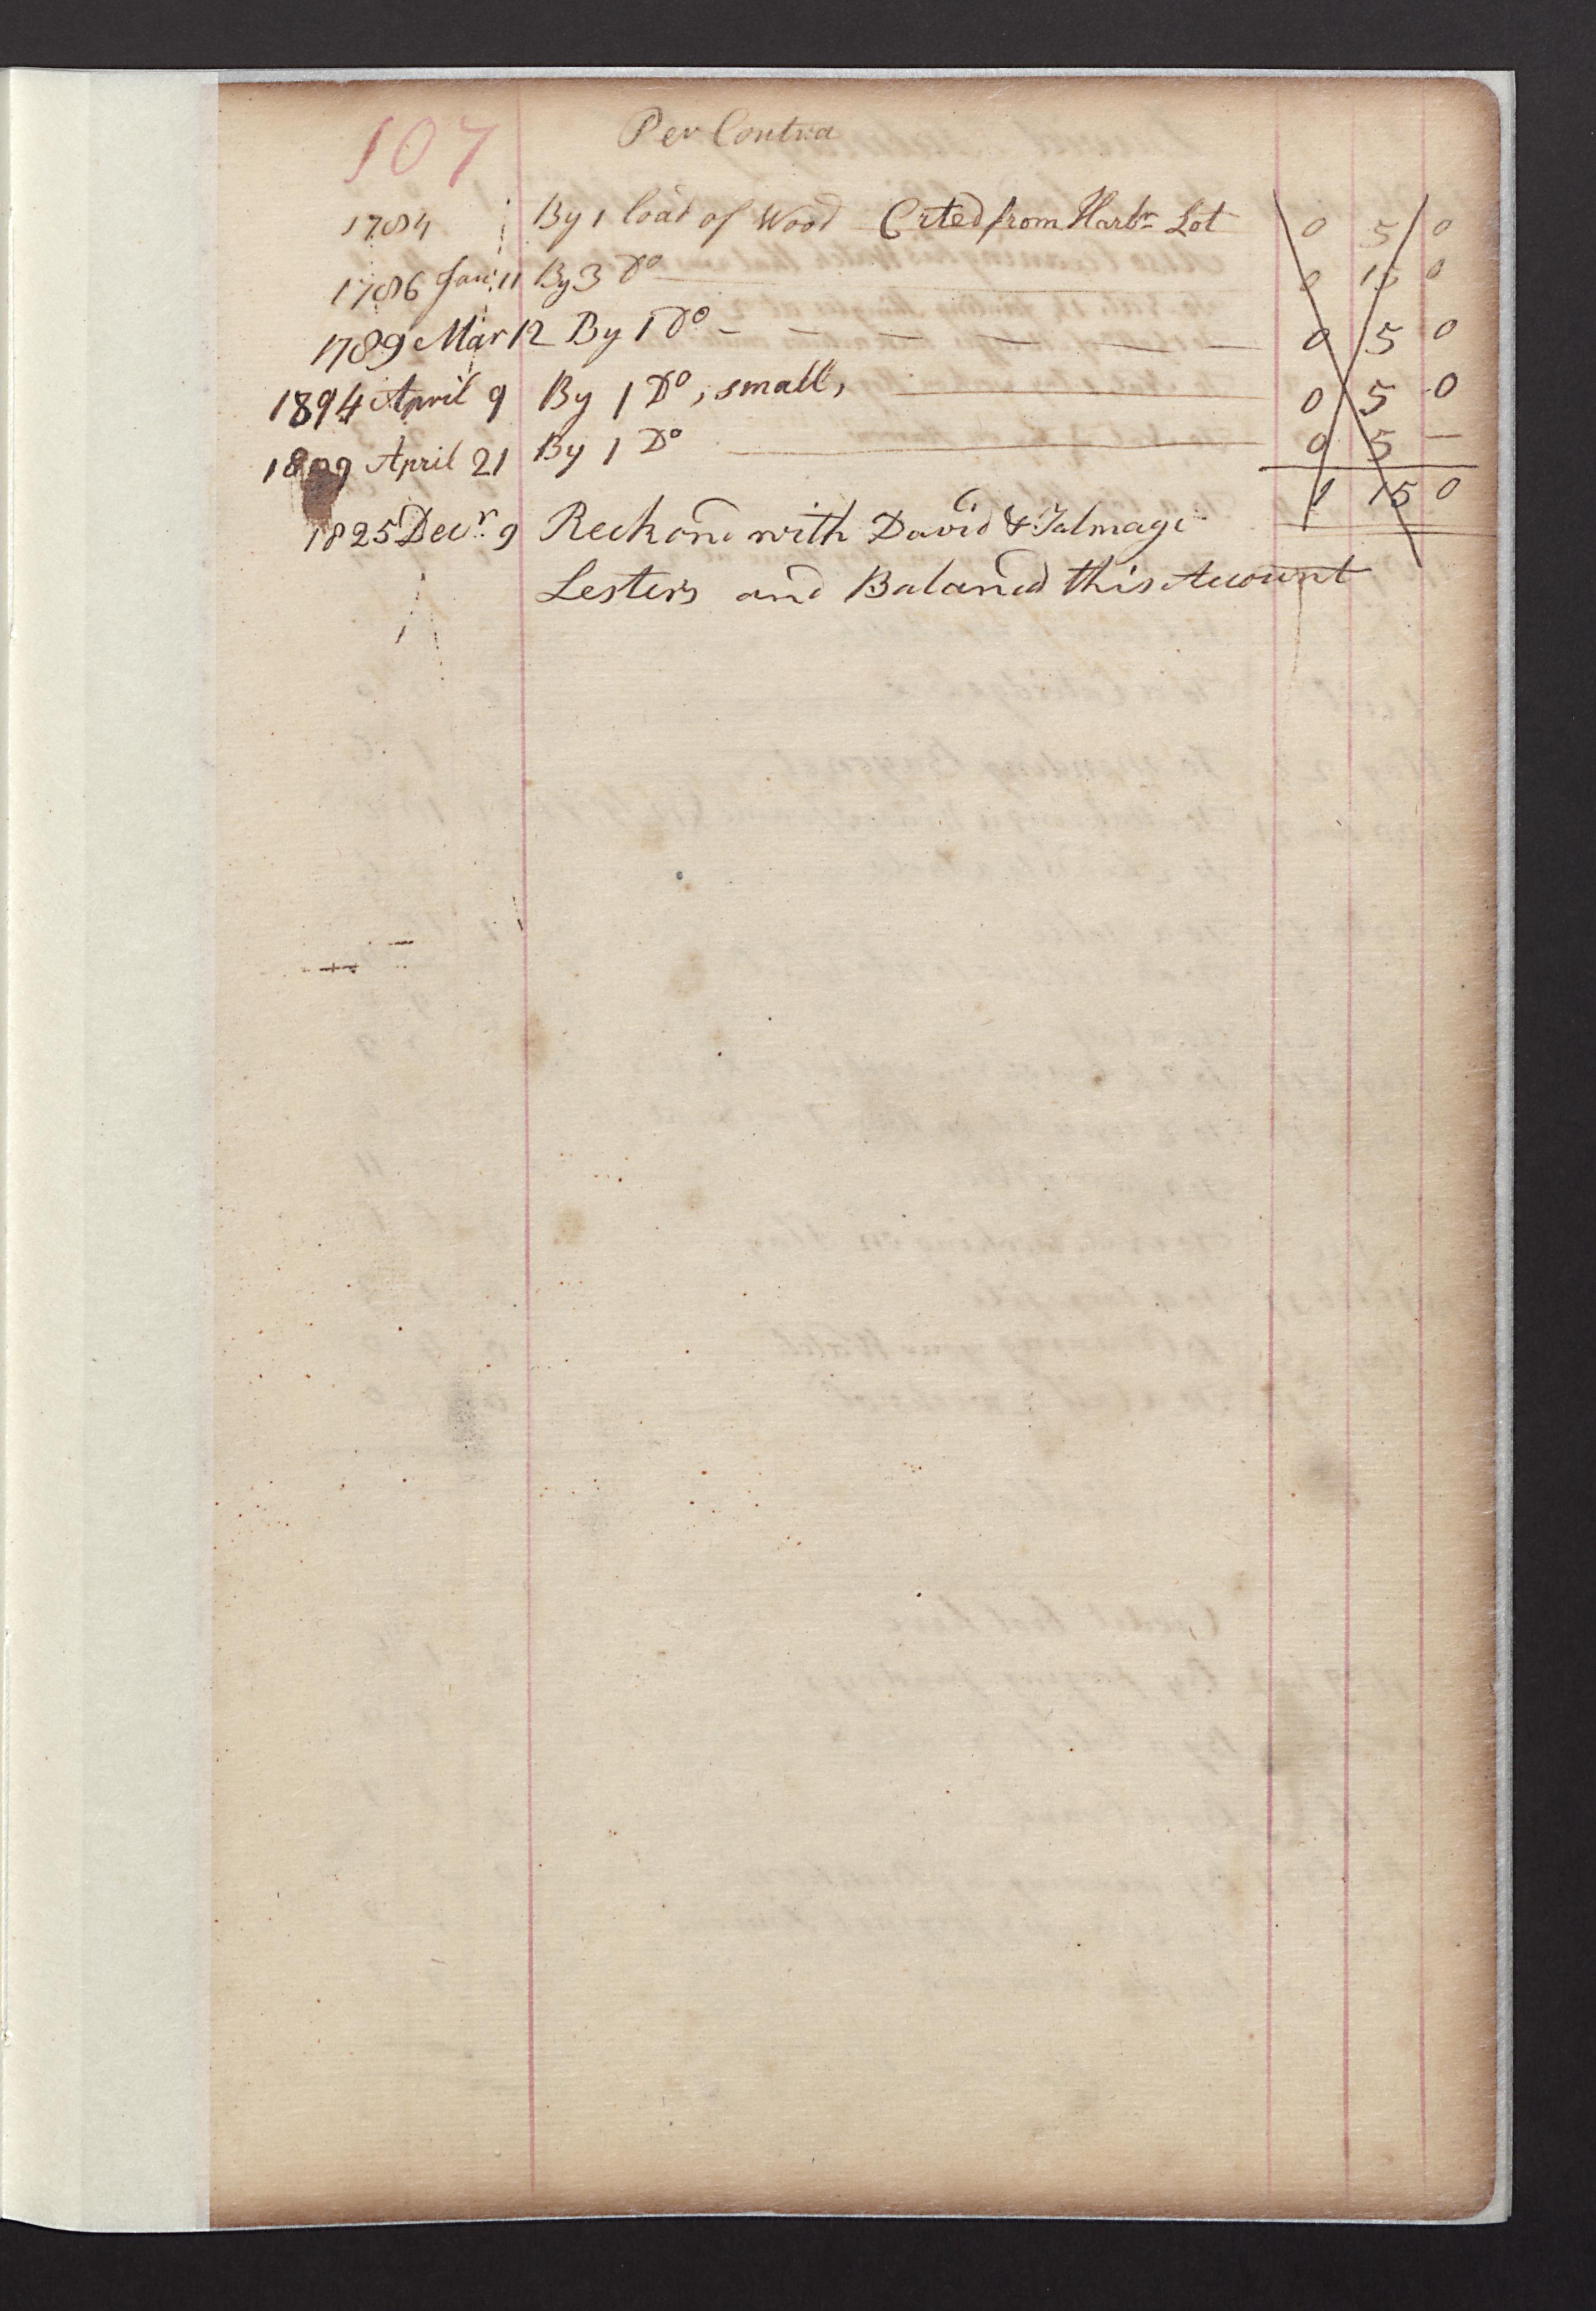 107 Per Contra
1784 By 1 load of Wood Crted from Harbr Lot 0 5 0
1786 Jan. 11 By 3 Do 0 15 0
1789 Mar 12 By 1 Do - - - - - - 0 5 0
1894 April 9 By 1 Do, small, 0 5 0
1809 April 21 By 1 Do 0 5 -
1 15 0
1825 Decr. 9 Reckond with David & Talmage
Lesters and Balancd this Account